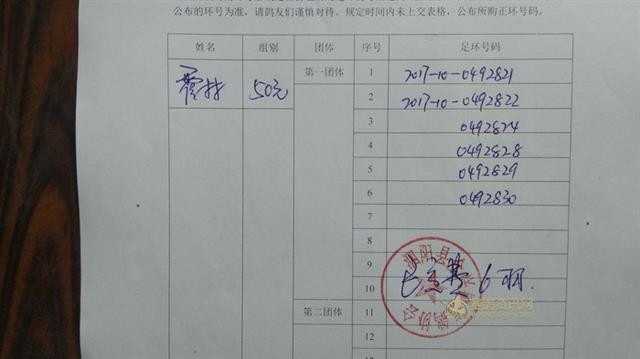 公布的环号为准，请鸽友们谨慎对待。规定时间内未上交表格，公布所购正环号码。
姓名 组别 团体 序号 足环号码
50元 第一团体 1 2017-10-0492821
2 2017-10-0492822
3 0492824
4 0492828
5 0492829
6 0492830
7
8
9
10 6羽.
第二团体 11
12